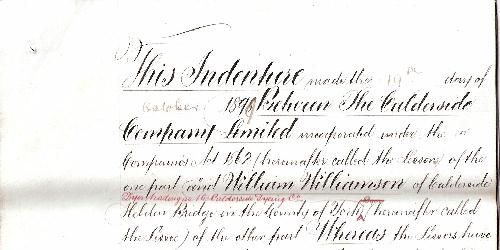 This Indenture made the 19th day of
October 1898 Between The Calderside
Company Limited incorporated under the
Companies Act 1862 (hereinafter called the Lessors) of the
one part and William Williamson of Calderside
Dyer trading as the Calderside Dyeing Co.
Hebden Bridge in the County of York (hereinafter called
the Lessee) of the other part Whereas the Lessors have